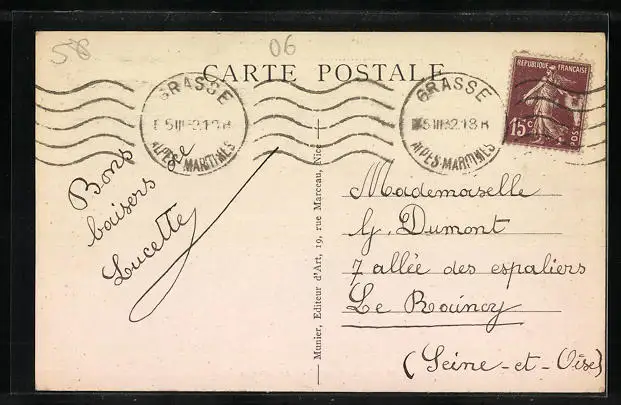 58
06
CARTE POSTALE
GRASSE
ALPES-MARITIMES
GRASSE
ALPES-MARITIMES
REPUBLIQUE FRANCAISE
15c
POSTES
Bons
baisers de
Lucette
Munier, Editeur d'Art, 19, rue Marceau, Nice
Mademoiselle
G. Dumont
7 allée des espaliers
Le
(Seine-et-Oise)